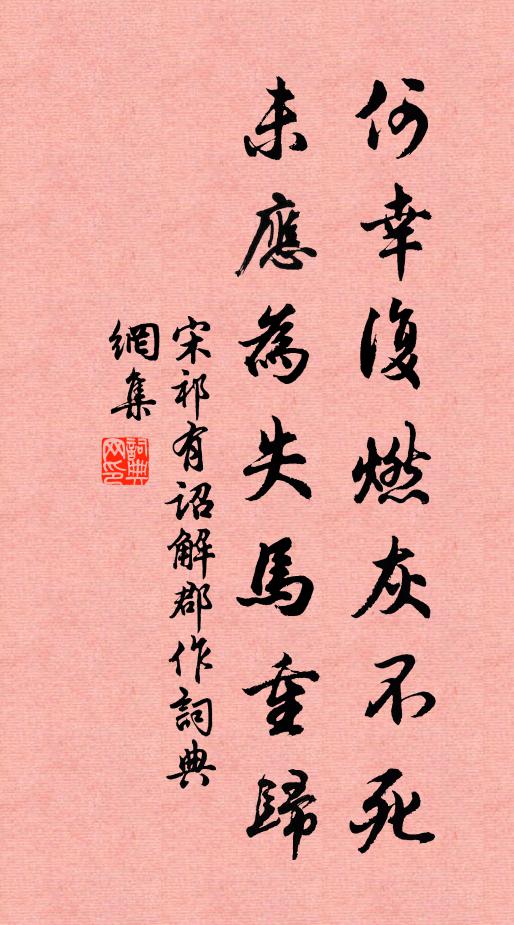 何幸復燃灰不死
未應為失馬重歸
宋祁有詔解郡作詞典
網集
詞典網印